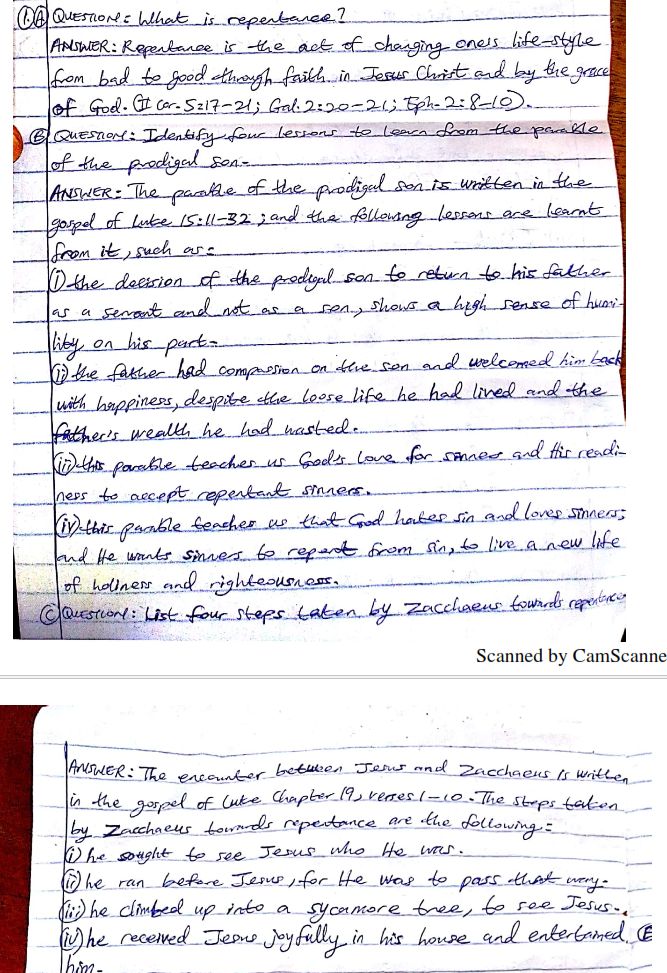 1.(A) QUESTION: What is repentance?
ANSWER: Repentance is the act of changing one's life-style
from bad to good through faith in Jesus Christ and by the grace
of God. (II Cor. 5:17-21; Gal. 2:20-21; Eph. 2:8-10).
(B) QUESTION: Identify four lessons to learn from the parable
of the prodigal son.
ANSWER: The parable of the prodigal son is written in the
gospel of Luke 15:11-32; and the following lessons are learnt
from it, such as:
(i) the decision of the prodigal son to return to his father
as a servant and not as a son, shows a high sense of humi-
lity on his part.
(ii) the father had compassion on the son and welcomed him back
with happiness, despite the loose life he had lived and the
father's wealth he had wasted.
(iii) this parable teaches us God's love for sinners and His readi-
ness to accept repentant sinners.
(iv) this parable teaches us that God hates sin and loves sinners;
and He wants sinners to repent from sin, to live a new life
of holiness and righteousness.
(C) QUESTION: List four steps taken by Zacchaeus towards repentance
Scanned by CamScanne
ANSWER: The encounter between Jesus and Zacchaeus is written
in the gospel of Luke Chapter 19, verses 1-10. The steps taken
by Zacchaeus towards repentance are the following:
(i) he sought to see Jesus who He was.
(ii) he ran before Jesus, for He was to pass that way.
(iii) he climbed up into a sycamore tree, to see Jesus.
(iv) he received Jesus joyfully in his house and entertained
him.